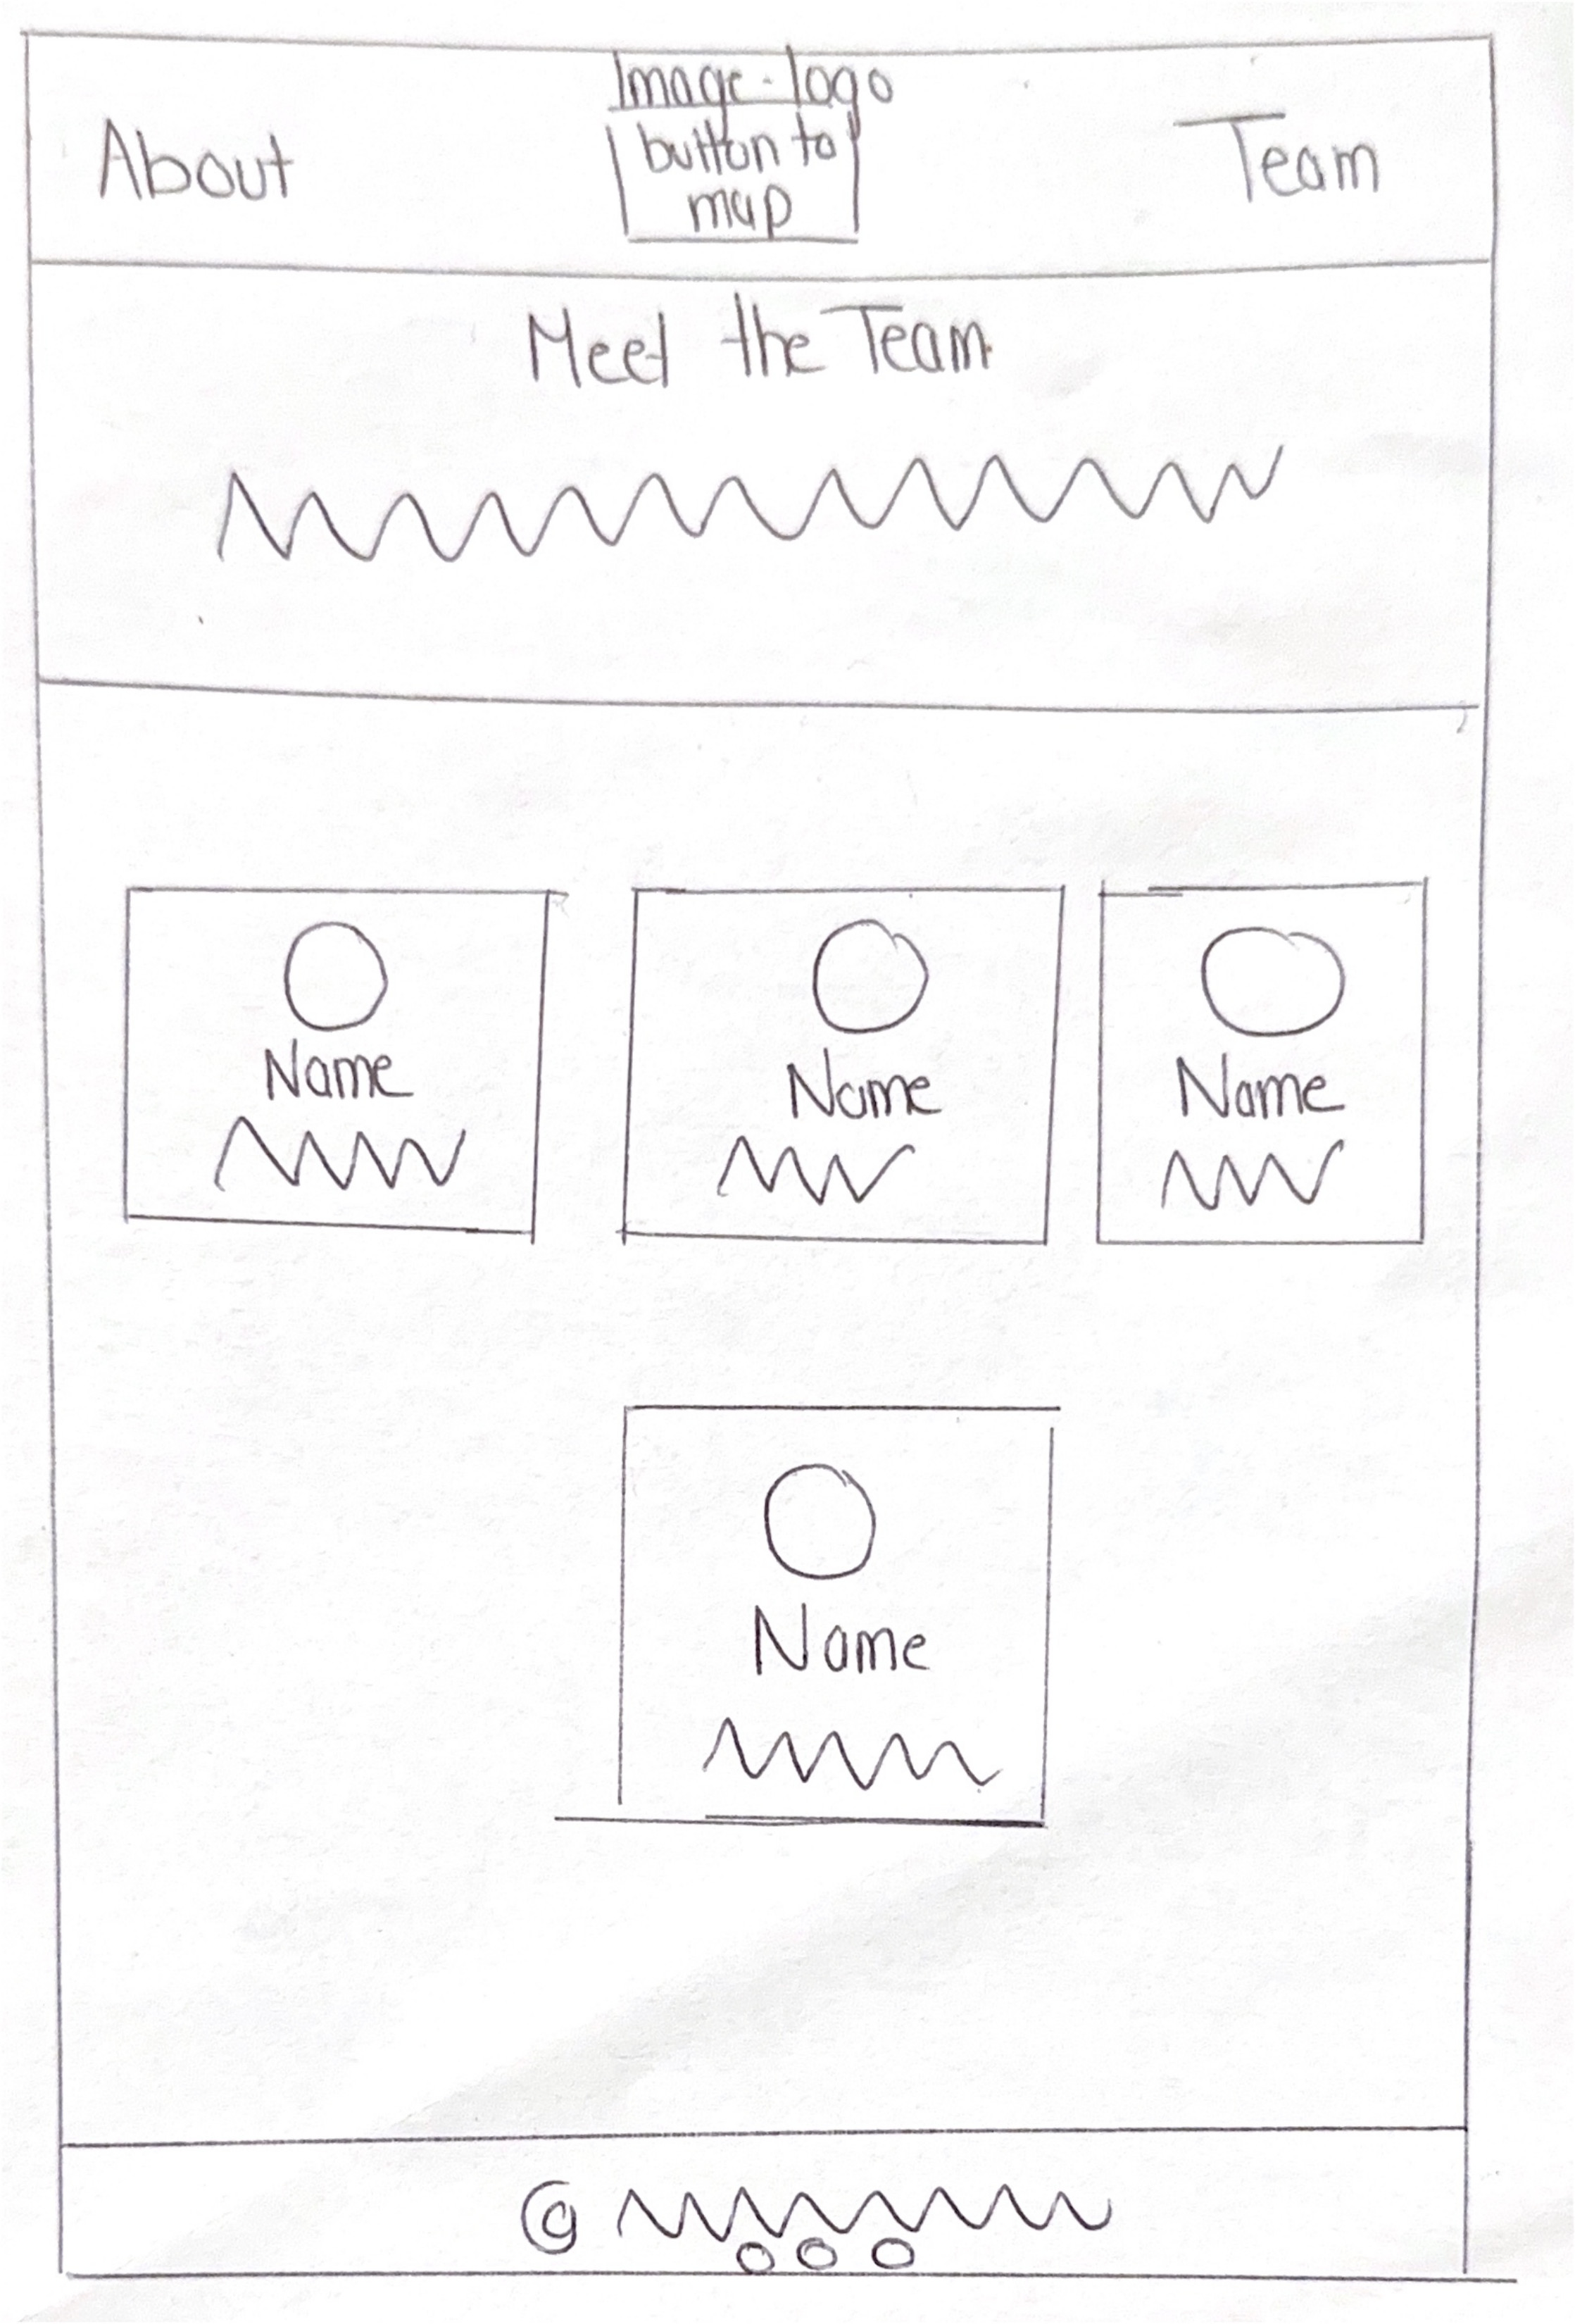 Image-logo
About
button to
map
Team
Meet the Team
Name
Name
Name
Name
©